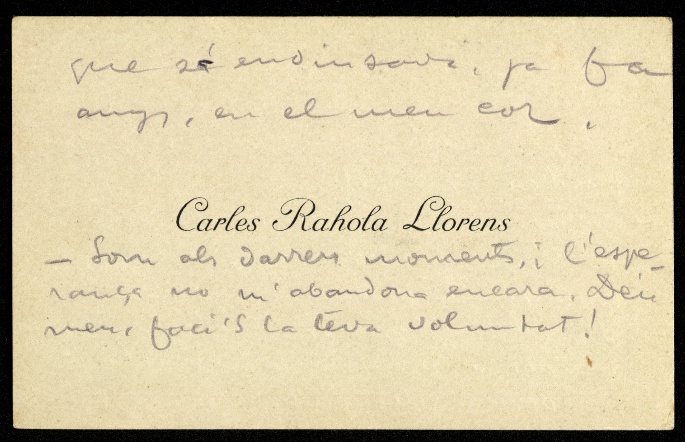 que s'endinsava, ja fa
anys, en el meu cor.
Carles Rahola Llorens
- Som als darrers moments, i l'espe-
rança no m'abandona encara. Déu
meu, faci's la téva voluntat!